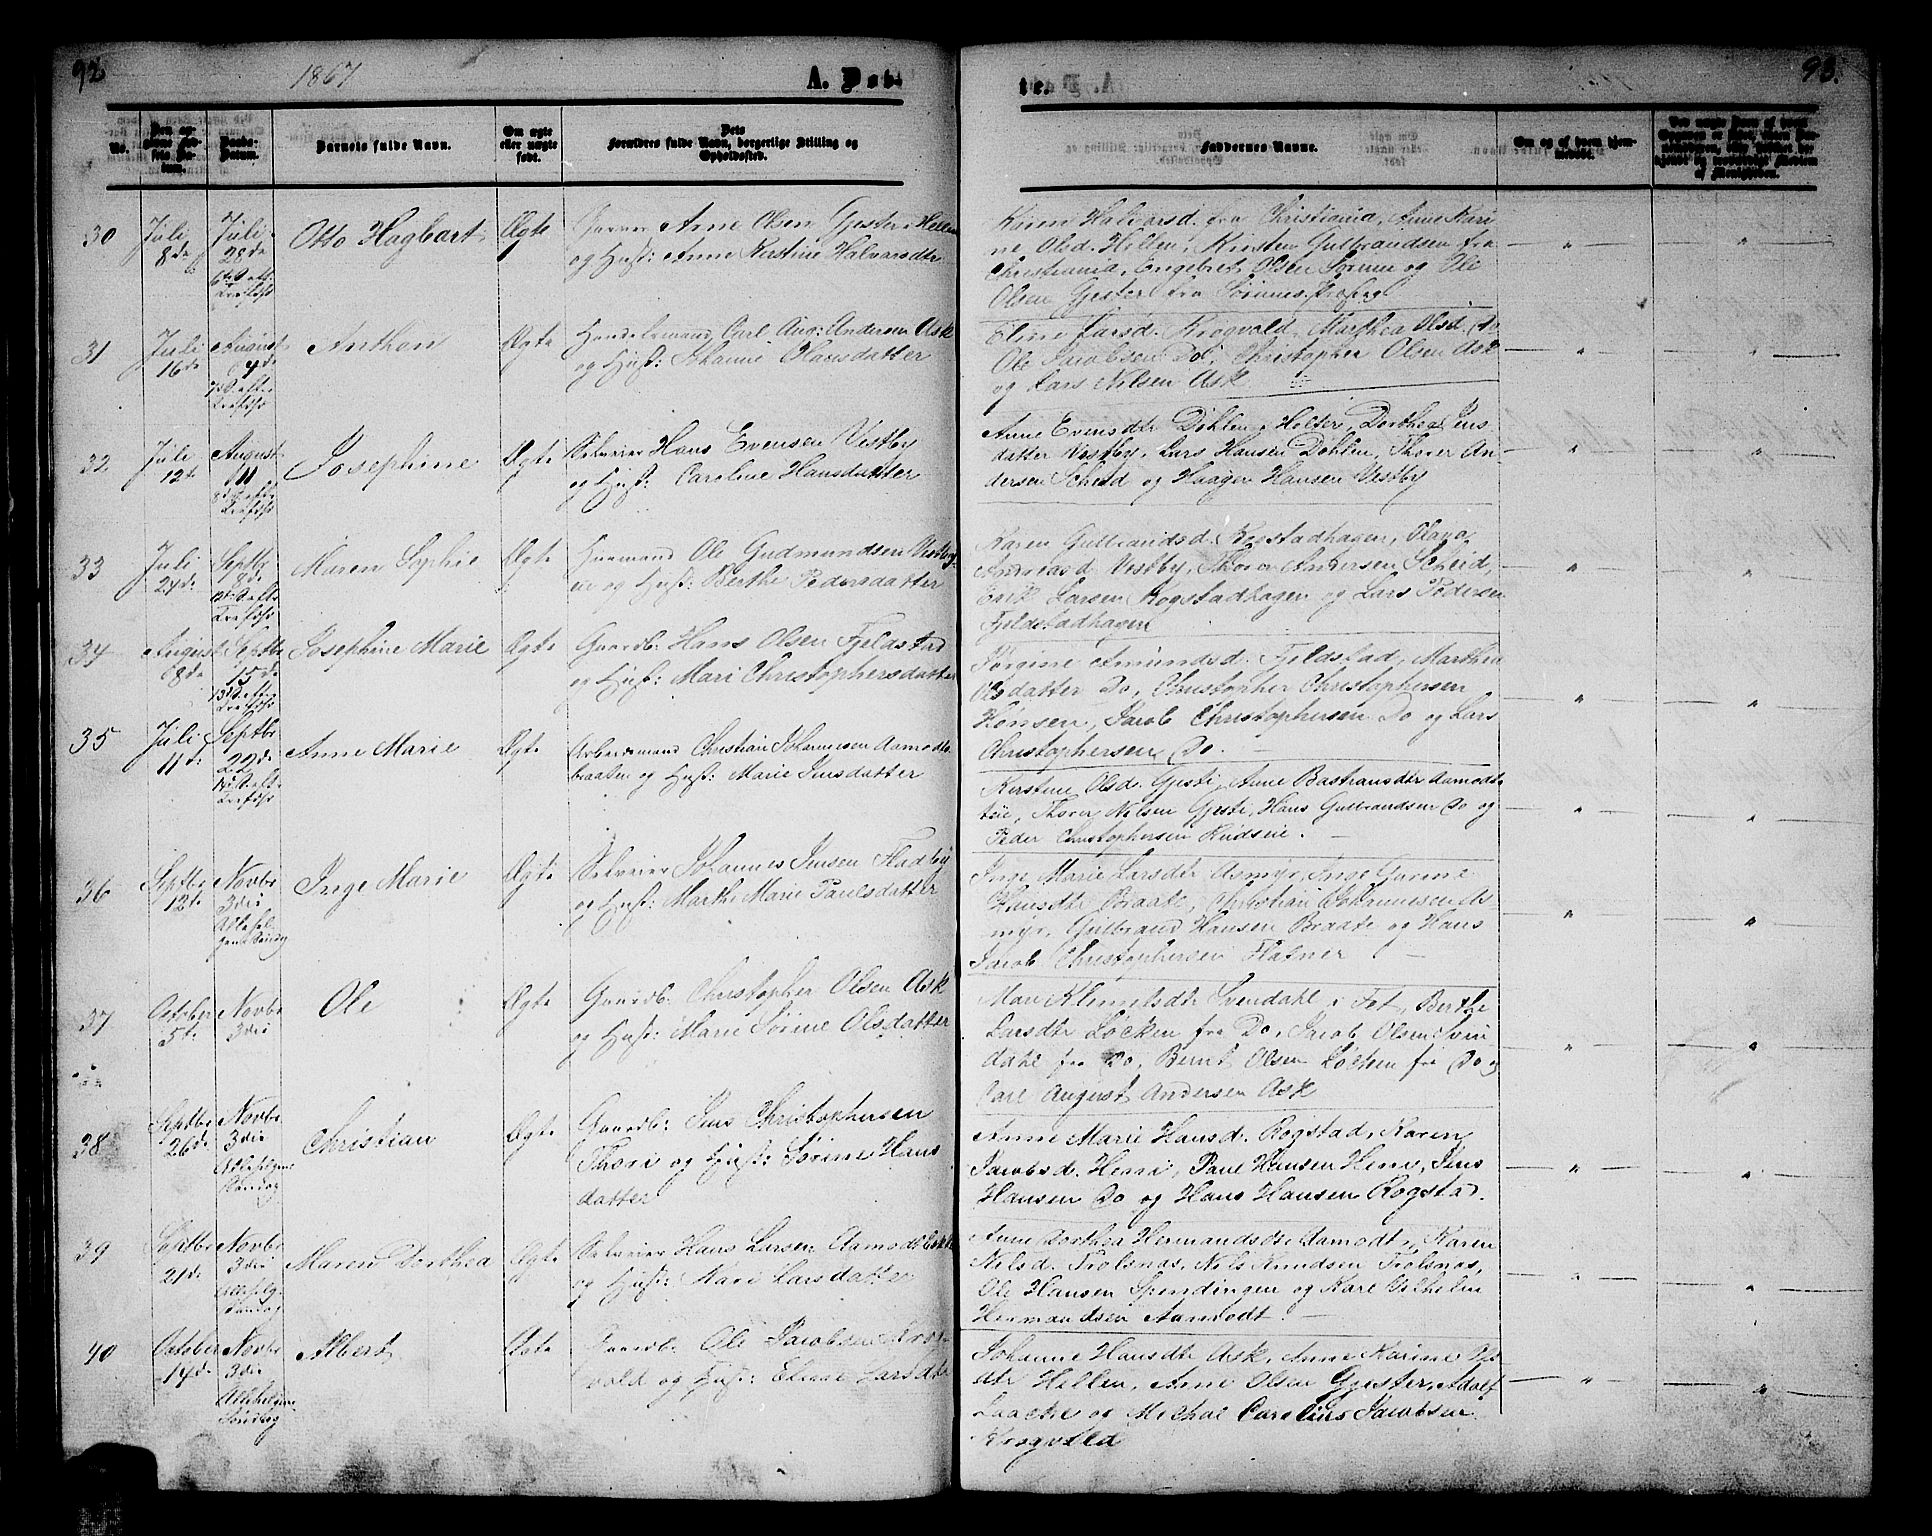 92
1867
A. Døb-
No.
Barnets fulde Navn.
Om ægte eller uægte født.
Forældres fulde Navn, borgerlige Stilling og Opholdssted.
30
Juli 8de
Juli 28de
6te S. eft. Trefdhs
Otto Hagbart
Ægte
Arne Olsen Gjester i Hellen
og Hust: Anne Kirstine Halvorsdtr
31
Juli 16de
August 4de
7de S. eft. Trefdhs
Anthon
Ægte
Handelsmand Carl Aug: Andersen Ask
og Hust: Johanne Hansdatter
32
Juli 12te
August 11
8de S. eft. Trefdhs
Josephine
Ægte
Selveier Hans Evensen Vestby
og Hust: Caroline Hansdatter
33
Juli 24de
Septbr 8de
12te S. eft. Trefdhs
Maren Sophie
Ægte
Huusmand Ole Gudmundsen Vestby-
eie og Hust: Berthe Pedersdatter
34
August 8de
Septbr 15de
13de S. eft. Trefdhs
Josephine Marie
Ægte
Gaardb: Hans Olsen Fjeldstad
og Hust: Mari Christophersdatter
35
Juli 11te
Septbr 22de
14de S. eft. Trefdhs
Anne Marie
Ægte
Arbeidsmand Christian Johannesen Aamodt-
braaten og Hust: Marie Jensdatter
36
Septbr 12te
Novbr 3die
Allehel-
gens Søndg
Inge Marie
Ægte
Selveier Johannes Jensen Fladby
og Hust: Marthe Marie Paulsdatter
37
October 5te
Novbr 3die
Ole
Ægte
Gaardb: Christopher Olsen Ask
og Hust: Marie Sørine Olsdatter
38
Septbr 26de
Novbr 3die
Allehelgens Søndag
Christian
Ægte
Gaardb: Jens Christophersen
Thori og Hust: Sørine Hans
datter
39
Septbr 21de
Novbr 3die
Allehelg. Søndag
Maren Dorthea
Ægte
Selveier Hans Larsen Aamodt
og Hust: Kari Larsdatter
40
October 14de
Novbr 3die
Allehelgens Søndag
Albert
Ægte
Gaardb: Ole Jacobsen Krog-
vold og Hust: Eline Larsdtr
93.
te.
Faddernes Navne.
Om og af hvem hjem-
medøbt.
Karen Halvorsd. fra Christiania, Anne Kari
ne Olsd. Hellen, Kirsten Gulbrandsen fra
Christiania, Engebret Olsen Sørum og Ole
Olsen Gjester fra Sørum
Eline Larsd. Krogvold, Marthea Olsd. Do
Ole Jacobsen Do, Christopher Olsen Ask
og Lars Nilsen Ask
Anne Evensdtr Døhlen i Holter, Dorthea Jens
datter Vestby, Lars Hansen Døhlen, Thorer An-
dersen Scheid og Haagen Hansen Vestby
Karen Gulbrandsd. Rogstadhagen, Olava
Andreasd Vestby, Thorer Andersen Scheid,
Erik Larsen Rogstadhagen og Lars Pedersen
Fjeldstadhagen
Jørgine Amundsd. Fjeldstad, Marthea
Olsdatter Do, Christopher Christophersen
Hønsen, Jacob Christophersen Do og Lars
Christophersen Do.
Kirstine Olsd. Gjesti, Anne Bastiansdtr Aamodt-
eie, Thorer Nilsen Gjesti, Hans Gulbrandsen Do og
Peder Christophersen
Inge Marie Larsdtr Asmyr, Inge Gurine
Hansdtr Braate, Christian Johannesen As-
myr, Gulbrand Hansen Braate og Hans
Jacob Christophersen Flatner
Mari Klemetsdtr Svendahl i Fet, Berthe
Larsdtr Løcken fra Do, Jacob Olsen Sven
dahl fra Do, Bernt Olsen Løcken fra Do og
Carl August Andersen Ask
Anne Marie Hansd. Rogstad, Karen
Jacobsd. Henni, Paul Hansen Henni, Jens
Hansen Do og Hans Hansen Rogstad.
Anne Dorthea Hermandsdtr Aamodt, Karen
Nilsd. Trolsnæs, Nils Knudsen Trolsnæs,
Ole Hansen Spendingen og Karl Vilhelm
Hermandsen Aamodt.
Johanne Hansdtr Ask, Anne Karine Ols
dtr Hellen, Arne Olsen Gjester, Adolf
Laache og Michal Carelius Jacobsen
Krogvold